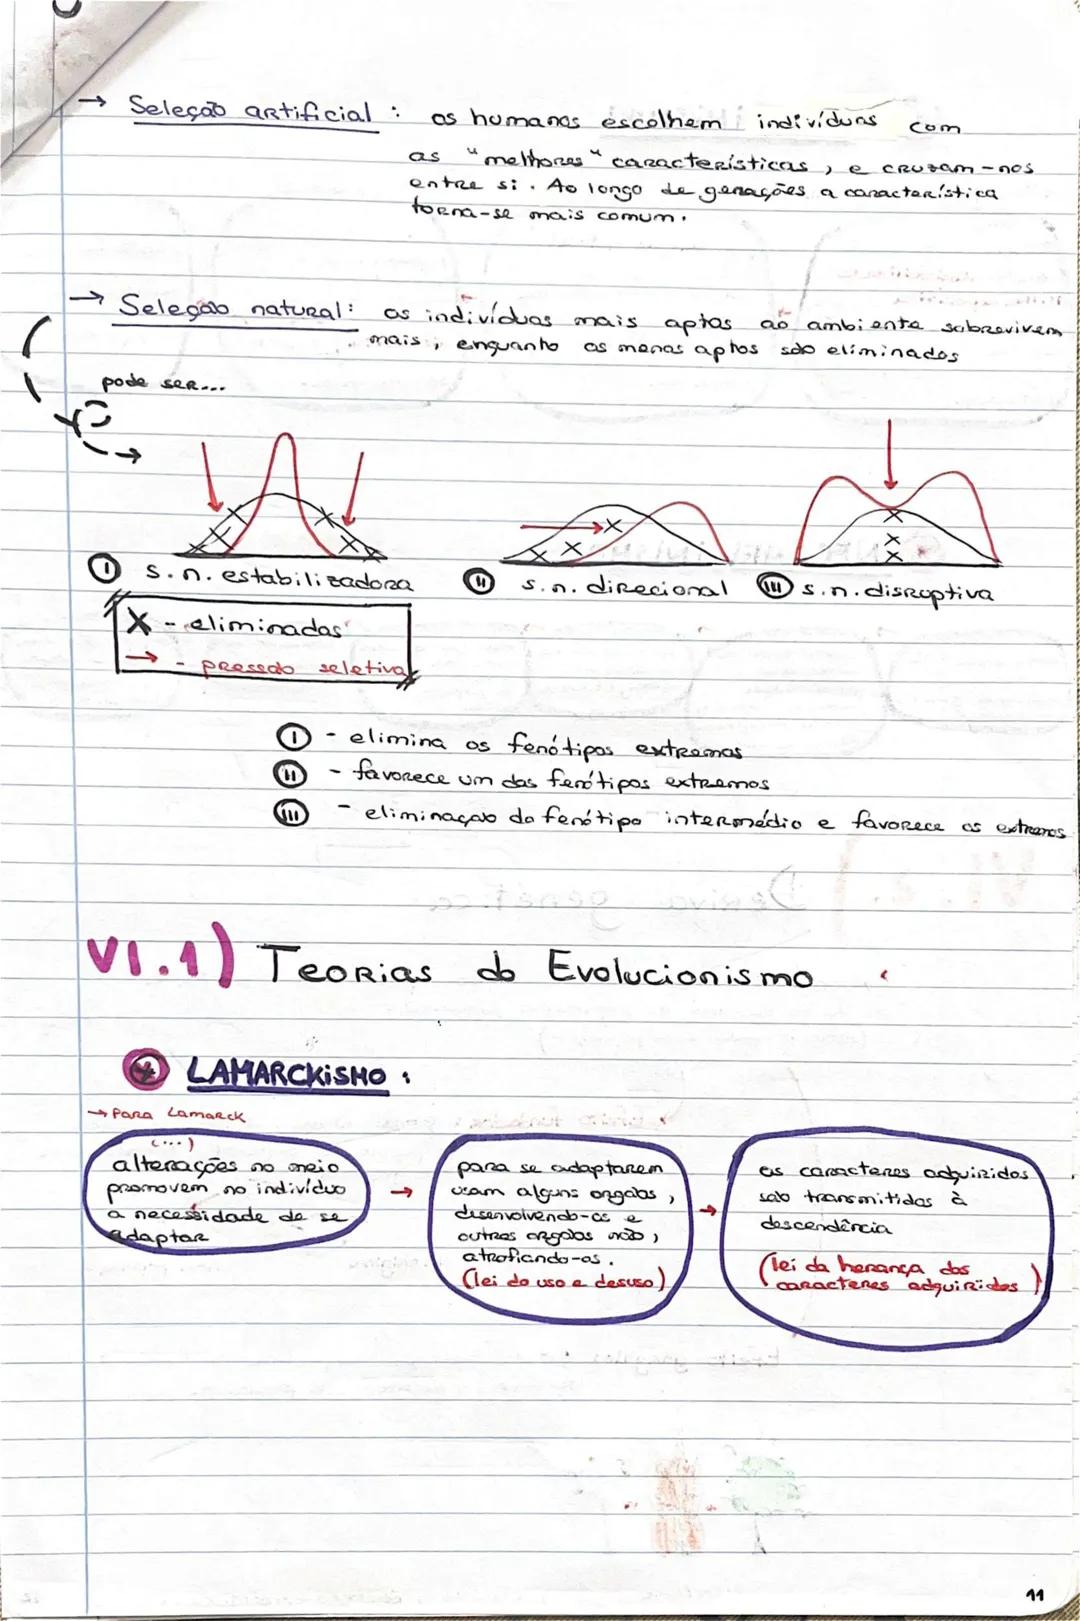 → Seleção artificial : os humanos escolhem indivíduos com
as "melhores" características, e cruzam-nos
entre si. Ao longo de gerações a característica
torna-se mais comum.
→ Seleção natural: os indivíduos mais aptos ao ambiente sobrevivem
mais, enquanto os menos aptos são eliminados
pode ser...
I s.n. estabilizadora
II s.n. direcional
III s.n. disruptiva
X - eliminados
→ - pressão seletiva
I - elimina os fenótipos extremos
II - favorece um dos fenótipos extremos
III - eliminação do fenótipo intermédio e favorece os extremos
VI.1) Teorias do Evolucionismo
LAMARCKISMO :
→ Para Lamarck
(...)
alterações no meio
promovem no indivíduo
a necessidade de se
adaptar
→
para se adaptarem
usam alguns orgãos,
desenvolvendo-os e
outros orgãos não,
atrofiando-os.
(lei do uso e desuso)
→
os caracteres adquiridos
são transmitidos à
descendência
(lei da herança dos
caracteres adquiridos)
11